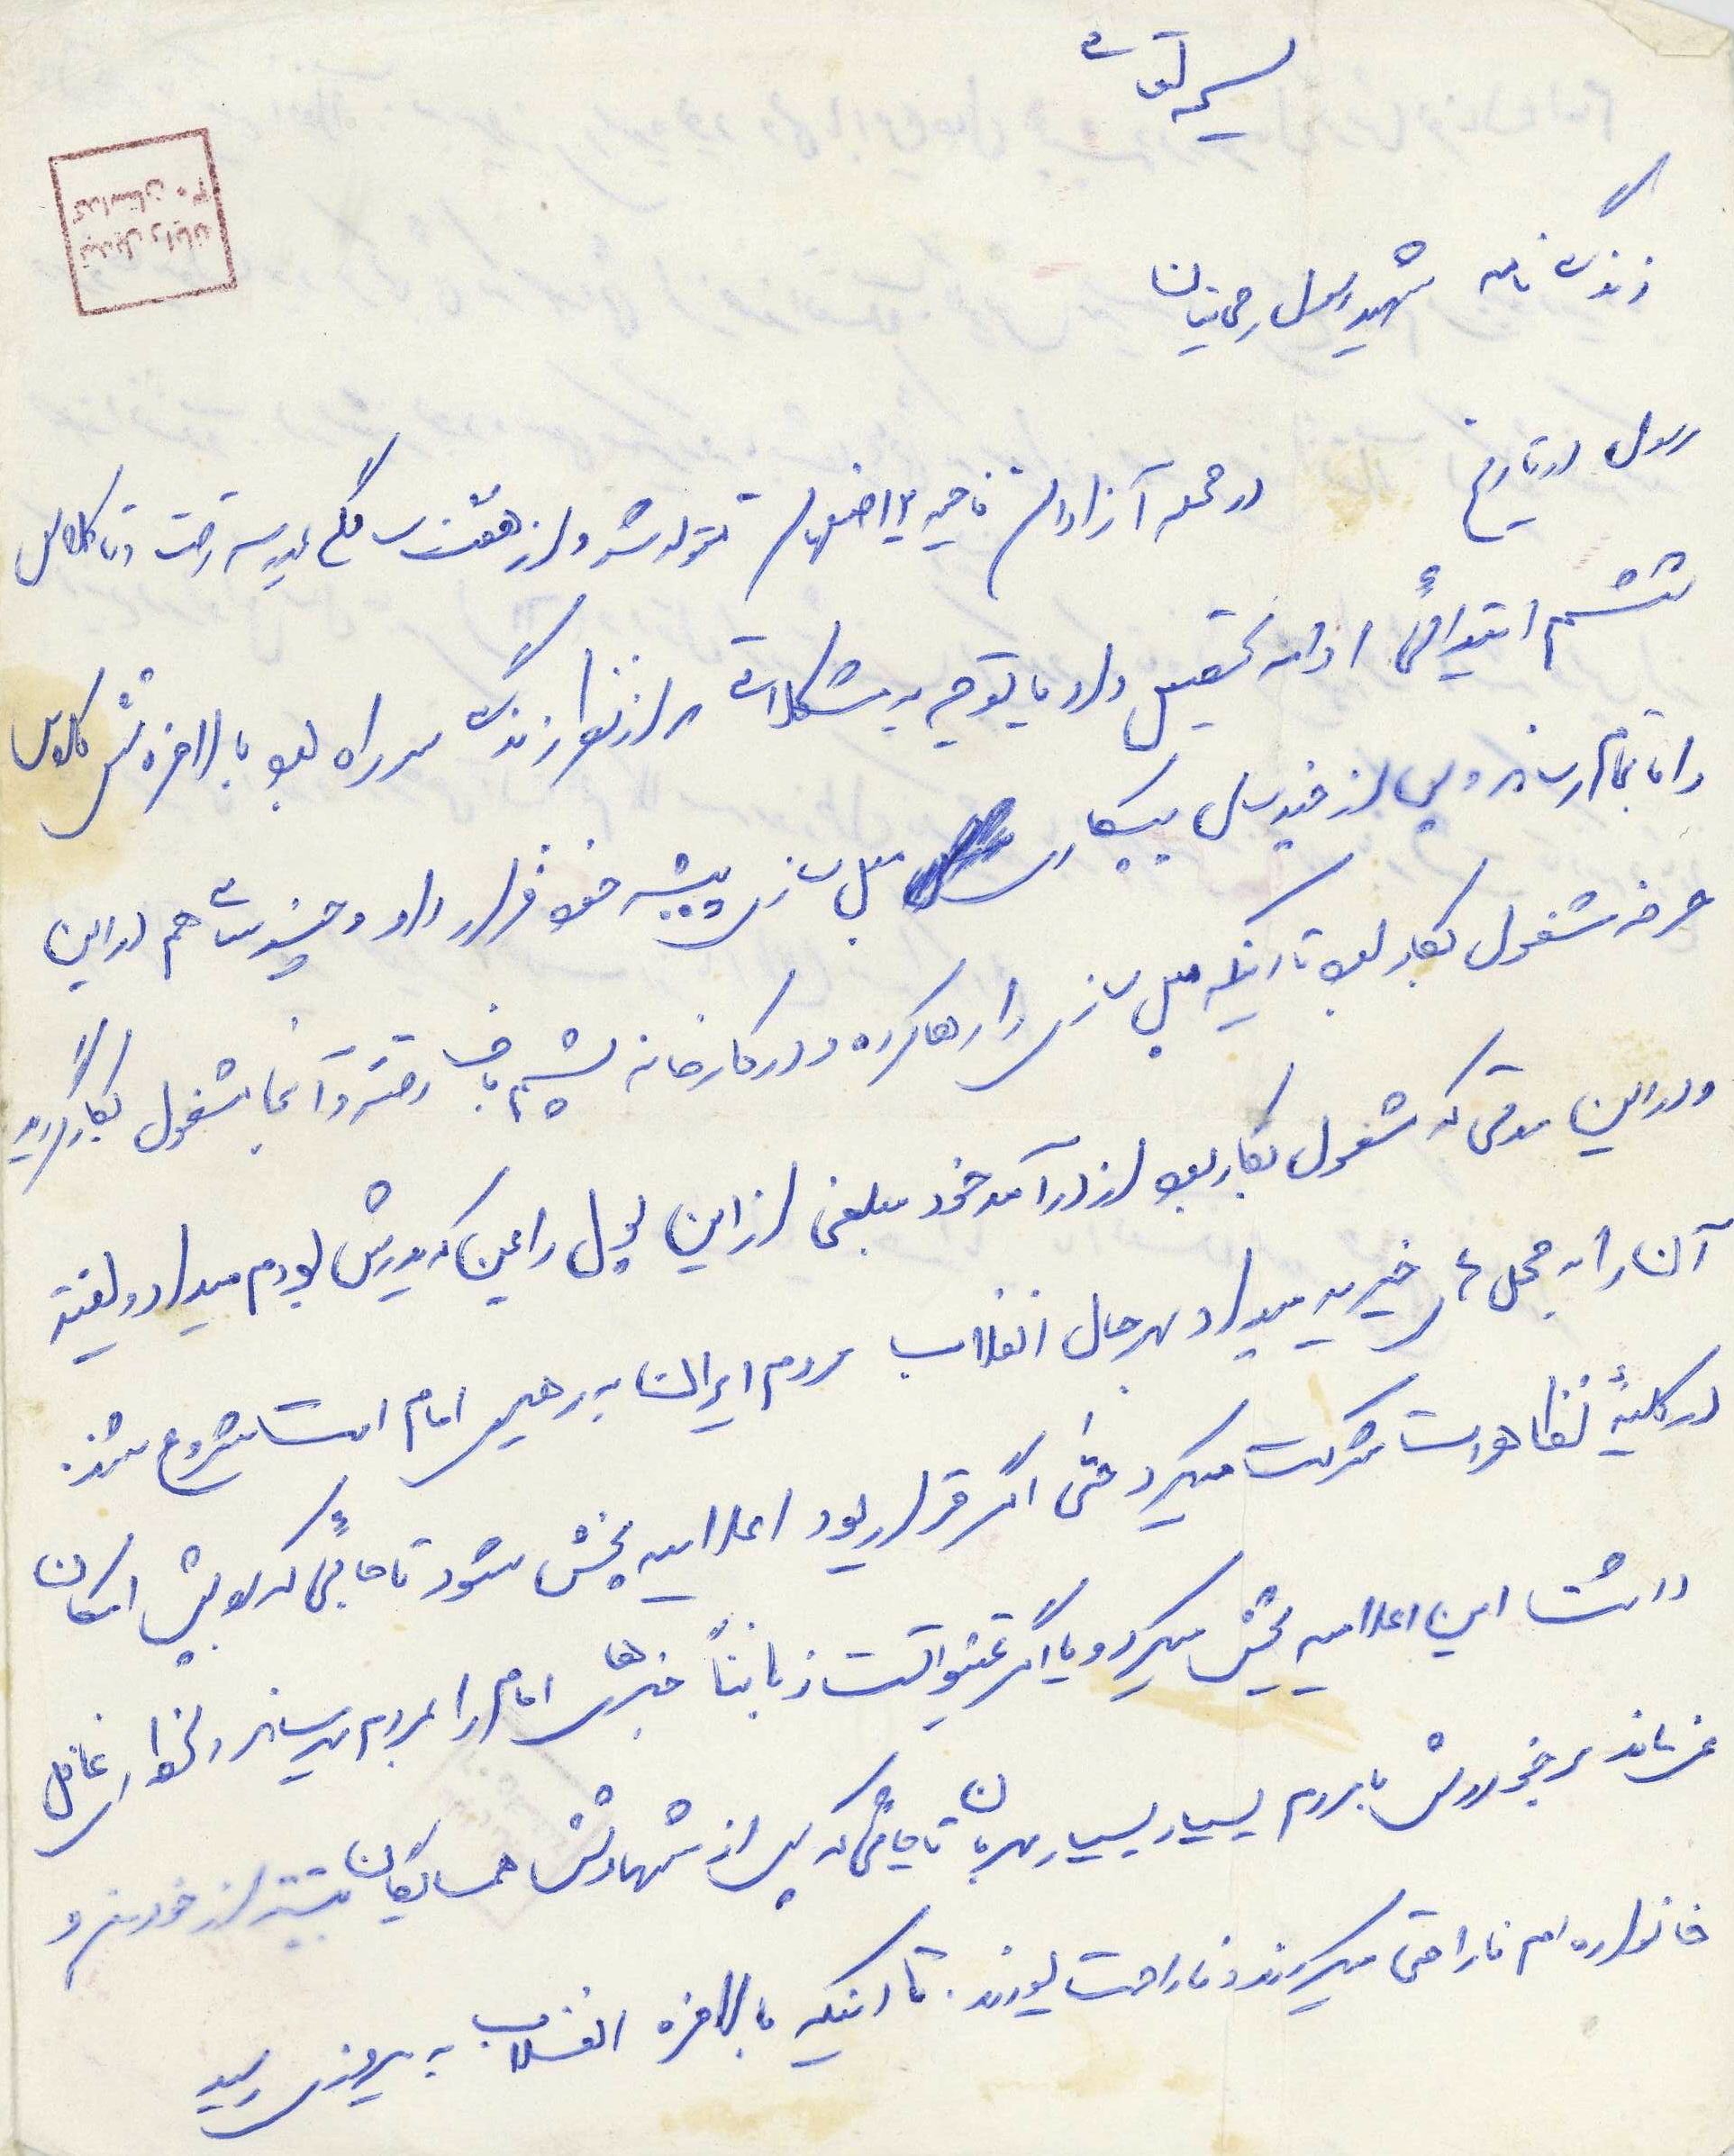 بسمه تعالی
زندگی نامه شهید رسول رحمانیان
رسول در تاریخ در محله آزادان ناحیه ۲ اصفهان متولد شد و از هفت سالگی بمدرسه رفت و تا کلاس
ششم ابتدائی ادامه تحصیل داد و با توجه به مشکلاتی که از نظر زندگی سر راه بود بالاخره شش کلاس
را با تمام رساند و پس از چند سال بیکاری مبل سازی پیشه خود قرار داد و چند سالی هم در این
حرفه مشغول بکار بود تا اینکه مبل سازی را رها کرده و در کارخانه پشم باف رفته و آنجا مشغول بکار گردید
و در این مدتی که مشغول بکار بود از درآمد خود مبلغی از این پول را بمن که پدرش بودم میداد و بقیه
آن را به محل های خیریه میداد بهر حال انقلاب مردم ایران به رهبری امام امت شروع شد.
در کلیهٔ تظاهرات شرکت میکرد حتی اگر قرار بود اعلامیه پخش شود تا جائی که برایش امکان
داشت این اعلامیه پخش میکرد و یا اگر نمیتوانست زباناً خبرهای امام را بمردم میرساند
برخوردش با مردم بسیار بسیار مهربان تا جائی که پس از شهادتش همسایگان بیشتر از خود من و
خانواده ام ناراحتی میکردند و ناراحت بودند. تا اینکه بالاخره انقلاب به پیروزی رسید